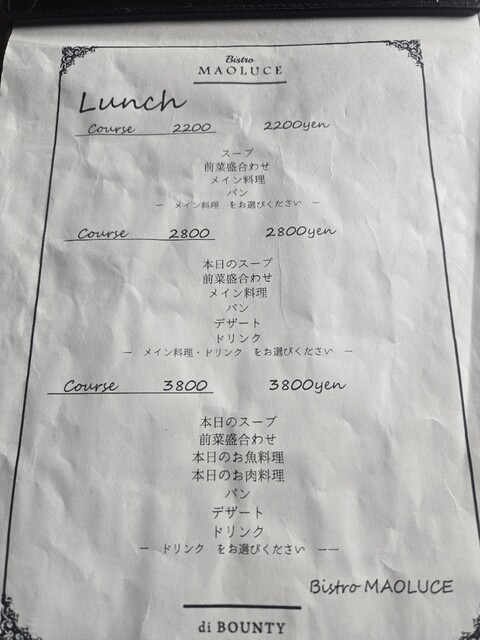 Bistro
MAOLUCE
Lunch
Course 2200 2200yen
スープ
前菜盛合わせ
メイン料理
パン
ー メイン料理 をお選びください ー
Course 2800 2800yen
本日のスープ
前菜盛合わせ
メイン料理
パン
デザート
ドリンク
ー メイン料理・ドリンク をお選びください ー
Course 3800 3800yen
本日のスープ
前菜盛合わせ
本日のお魚料理
本日のお肉料理
パン
デザート
ドリンク
ー ドリンク をお選びください ーー
Bistro MAOLUCE
di BOUNTY